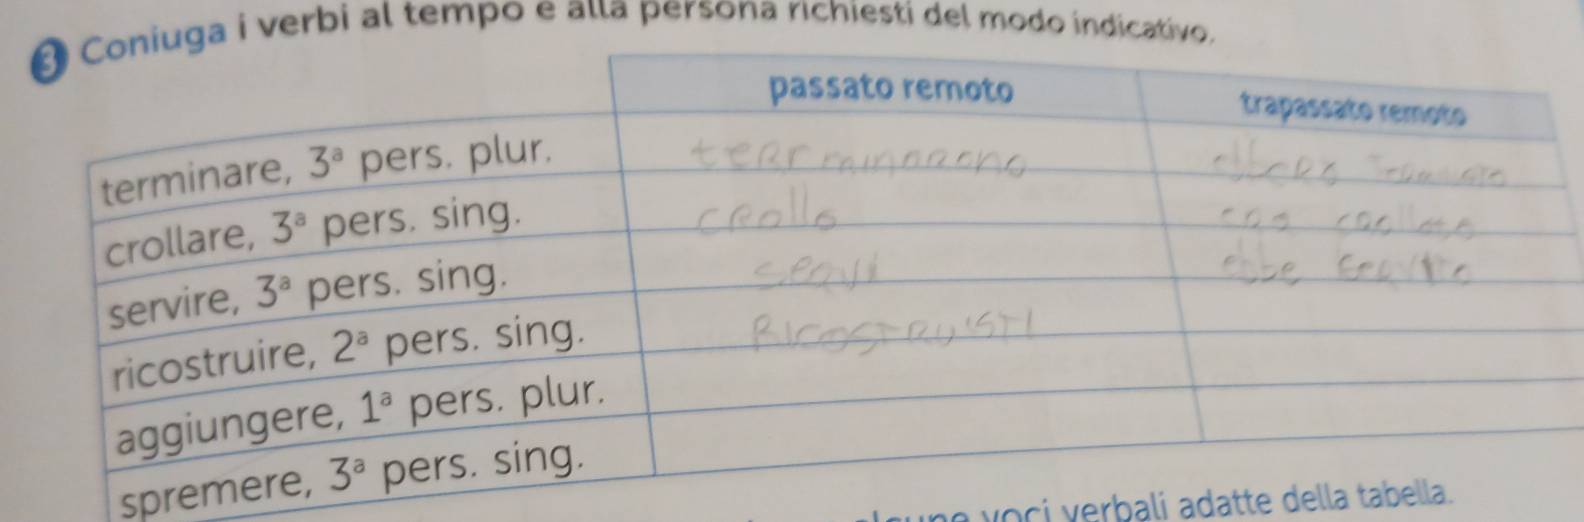 3 Coniuga i verbi al tempo e alla persona richiesti del modo indicativo.
passato remoto trapassato remoto
terminare, 3ª pers. plur.
crollare, 3ª pers. sing. crollo
servire, 3ª pers. sing. servi ebbe servito
ricostruire, 2ª pers. sing. RICOSTRUISTI
aggiungere, 1ª pers. plur.
spremere, 3ª pers. sing.
voci verbali adatte della tabella.